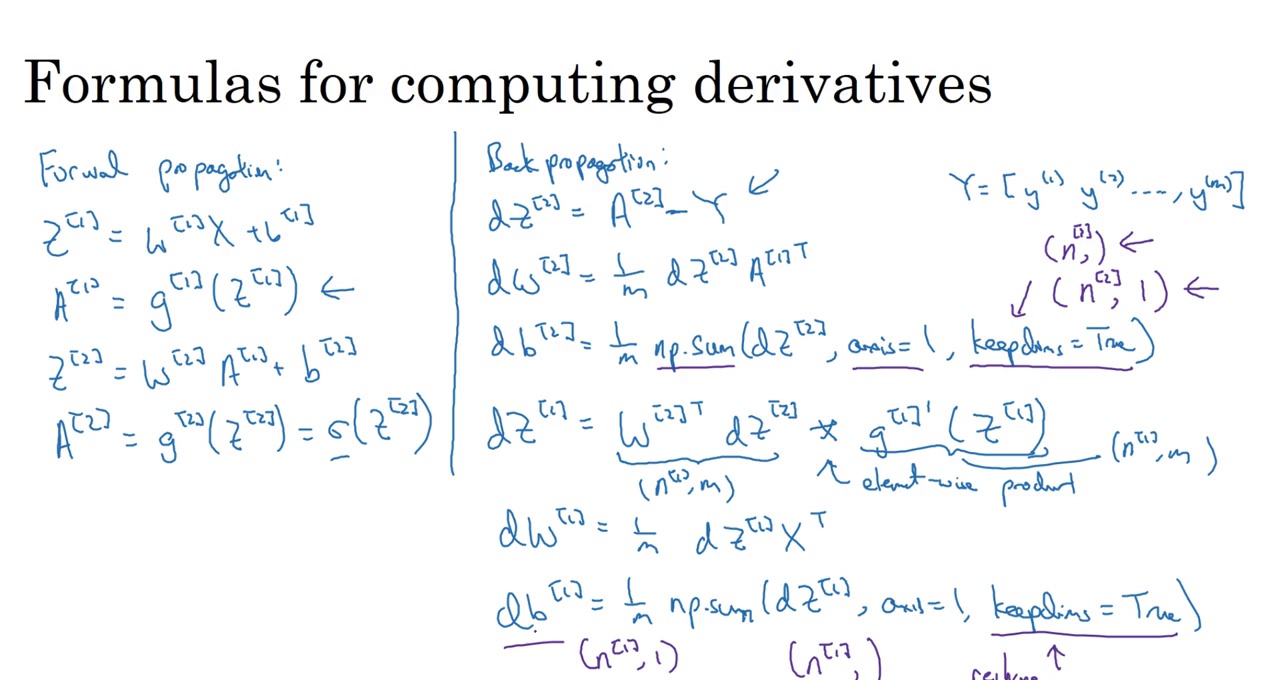 Formulas for computing derivatives
Forward propagation:
Z^[1] = W^[1]X + b^[1]
A^[1] = g^[1](Z^[1]) ←
Z^[2] = W^[2] A^[1] + b^[2]
A^[2] = g^[2](Z^[2]) = σ(Z^[2])
Back propagation:
dZ^[2] = A^[2] - Y ↙
dW^[2] = 1/m dZ^[2] A^[1]T
db^[2] = 1/m np.sum(dZ^[2], axis=1, keepdims=True)
dZ^[1] = W^[2]T dZ^[2] * g^[1]' (Z^[1])
(n^[1], m) ↑ element-wise product (n^[1], m)
dW^[1] = 1/m dZ^[1] X^T
db^[1] = 1/m np.sum(dZ^[1], axis=1, keepdims=True)
(n^[1], 1) (n^[1],) ↑
Y = [y^(1) y^(2) ..., y^(m)]
(n^[2],) ←
↙ (n^[2], 1) ←